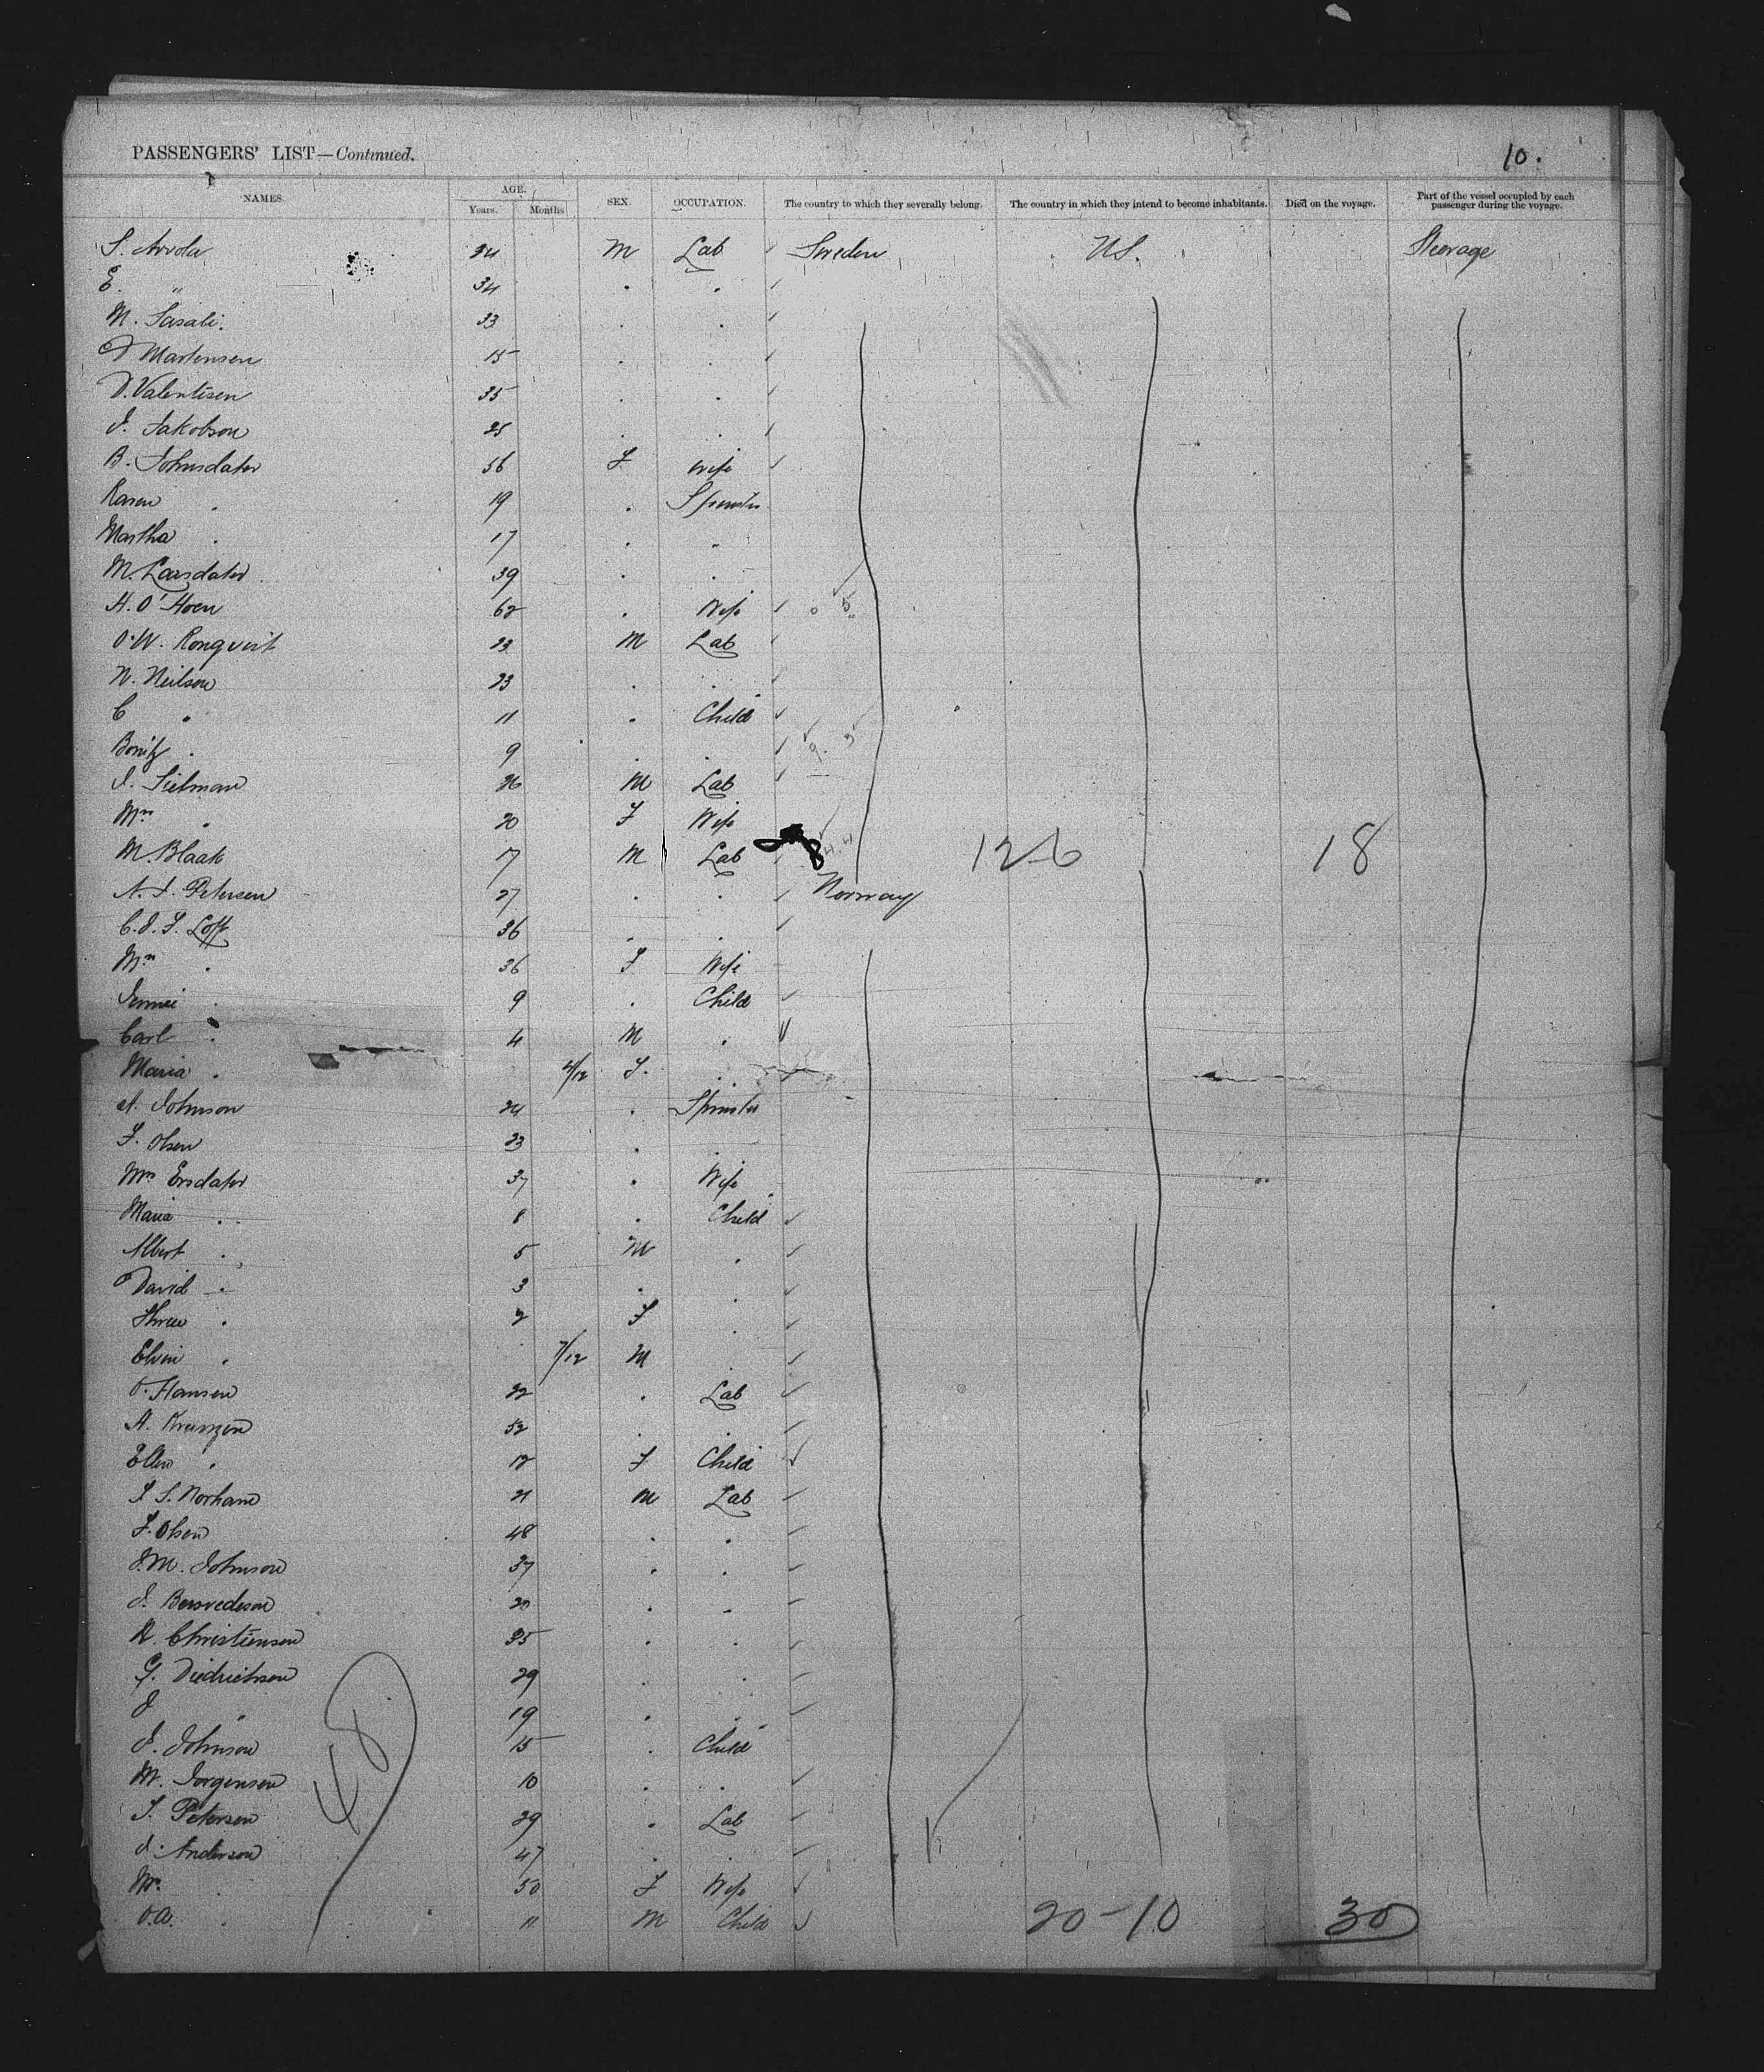 PASSENGERS' LIST—Continued. 10.
NAMES. AGE. Years. Months SEX. OCCUPATION. The country to which they severally belong. The country in which they intend to become inhabitants. Died on the voyage. Part of the vessel occupied by each passenger during the voyage.
S. Arvola 24 M Lab Sweden U.S. Steerage
E. " 34 . .
M. Sasali. 23 . .
Martensen 15 . .
Valentisen 35 . .
J. Jakobson 25 . .
B. Johnsdater 56 F Wife
Karen . 19 . Spinster
Martha . 17 . "
M. Larsdater 39 . .
H. O'Hoen 62 . Wife
O.W. Ronqvist 23 M Lab
N. Neilson 23 . .
C " 11 . Child
9 . .
J. Sielman 26 M Lab
Mrs " 20 F Wife
M. Blaak 17 M Lab 12-6 18
A. J. Petersen 27 . . Norway
C.J.F. Loff 36 . .
Mrs . 36 F Wife
Jennie . 9 . Child
Carl . 4 M .
Maria . 4/12 F. .
A. Johnson 24 . Spinster
F. Olsen 23 . .
Mrs Ersdater 37 . Wife
Maria . . 8 . Child
Albert . 5 M .
David . 3 . .
. 2 F .
Elvin . 7/12 M .
O. Hansen 22 . Lab
A. 52 . .
Ellen . 12 F Child
J. S. Norhand 21 M Lab
F. Olsen 48 . .
J.M. Johnson 37 . .
J. 20 . .
K. Christiensen 35 . .
G. Diedrichsen 29 . .
J " 19 . .
J. Johnson 15 . Child
M. Jorgensen 10 . .
S. Petersen 29 . Lab
J. Anderson 47 . .
Mrs . 50 F Wife
O.A. . 11 M Child 20-10 30
48